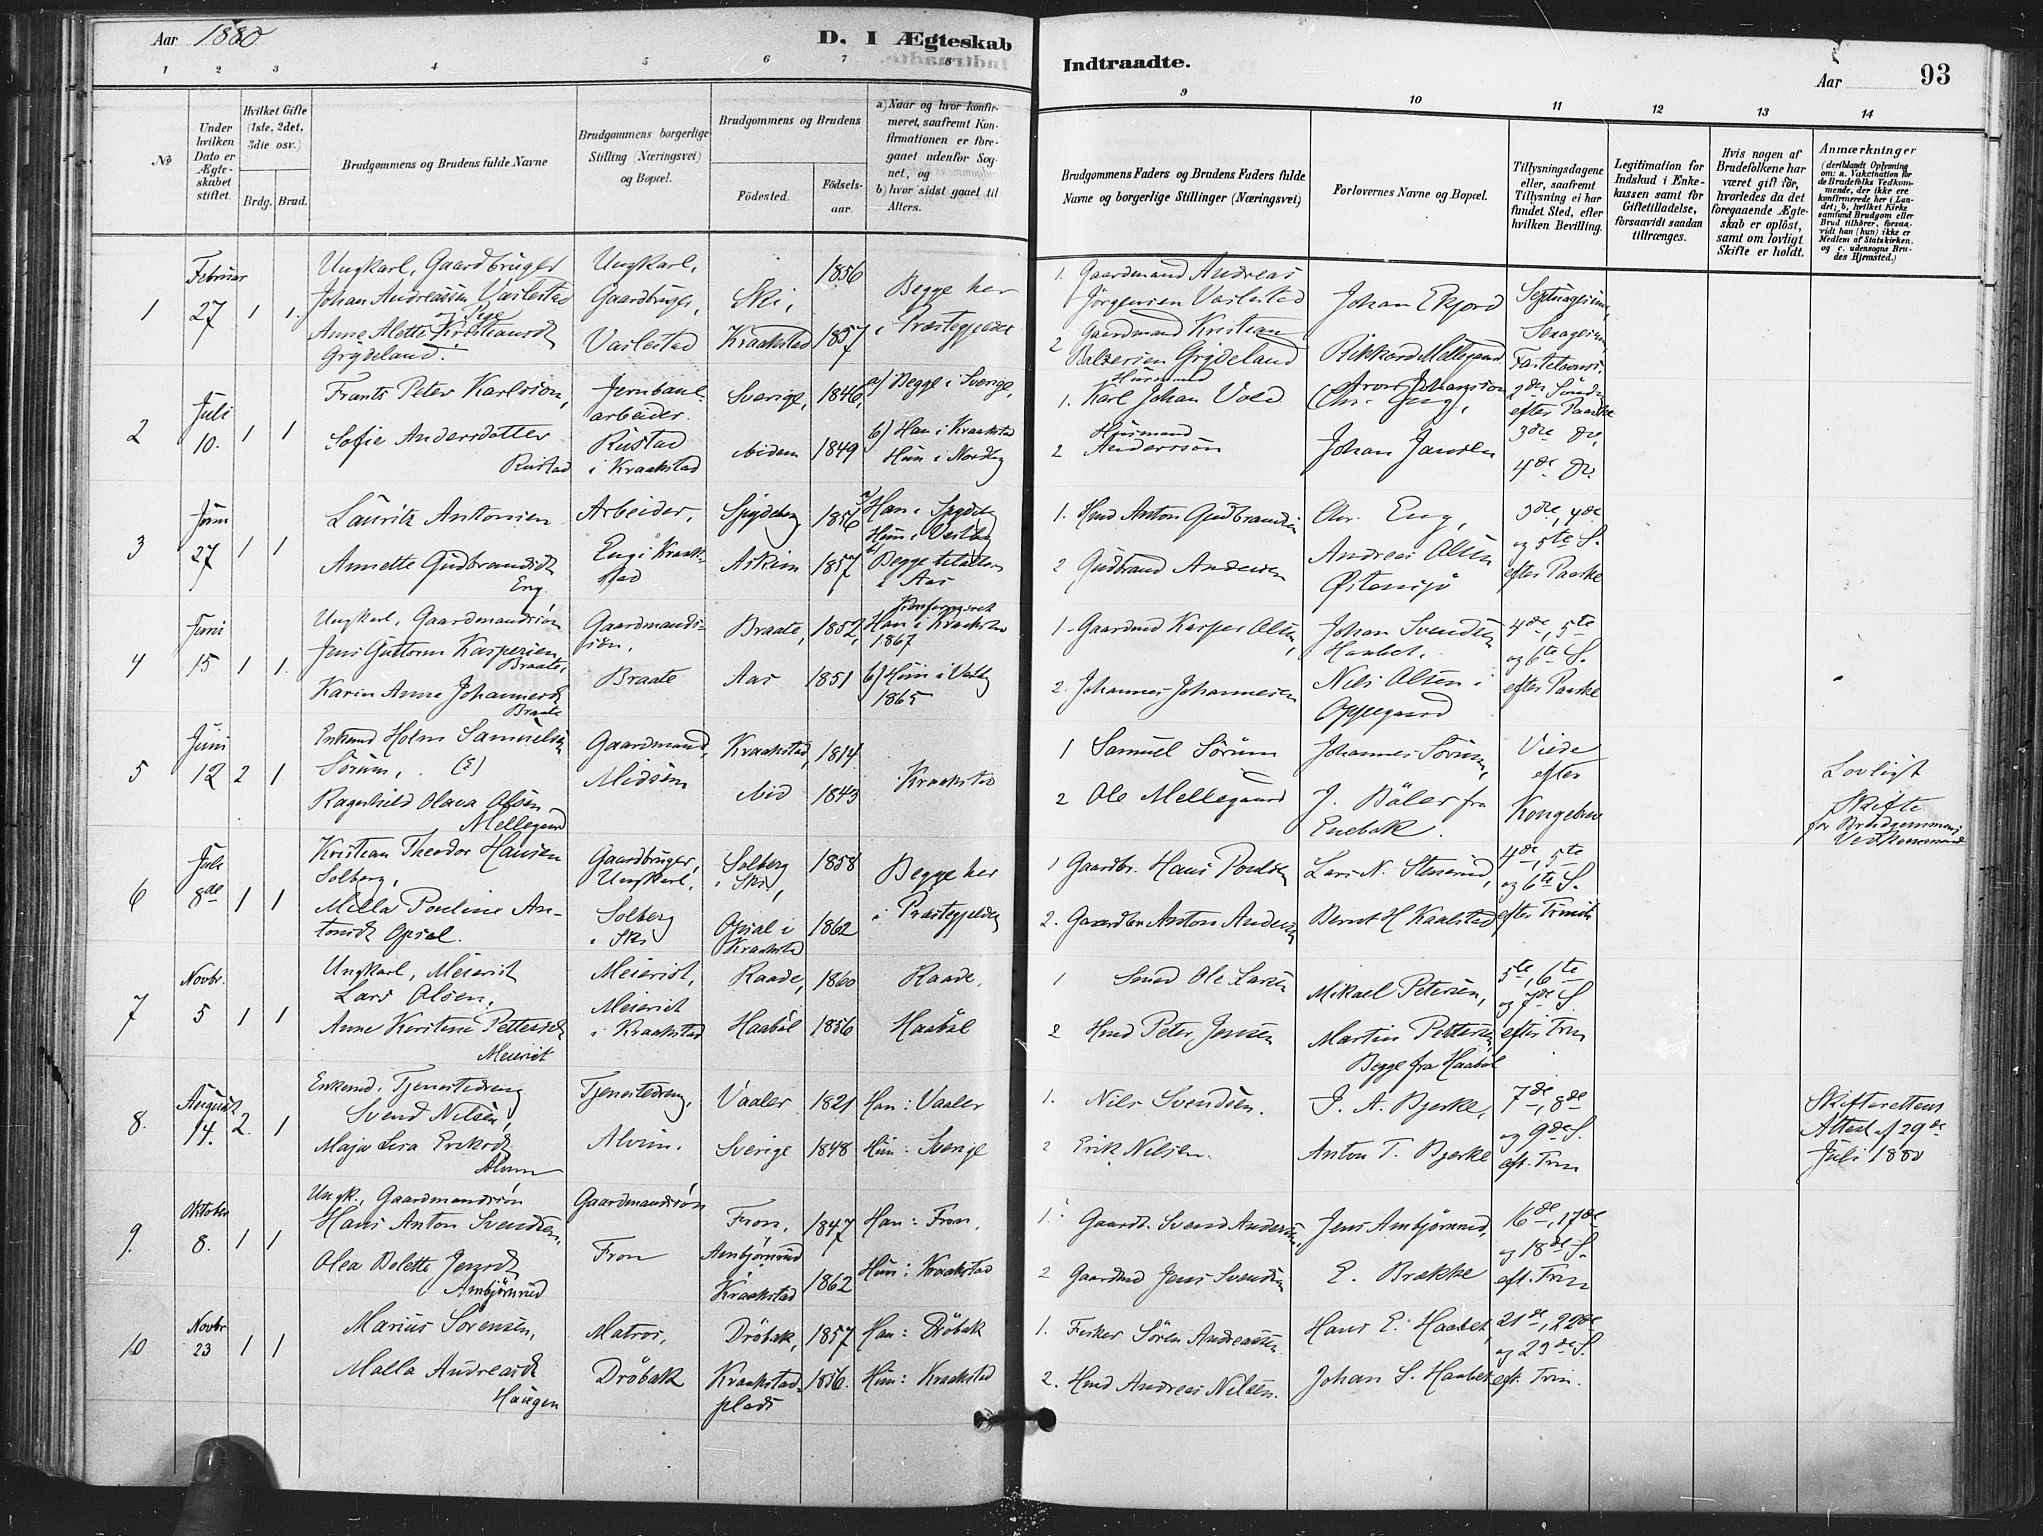 Aar 1880
D. I Ægteskab
Indtraadte.
Aar
93
1 2 3 4 5 6 7 8
9 10 11 12 13 14
No
Under hvilken Dato er Ægteskabet stiftet.
Hvilket Gifte (1ste, 2det, 3die osv.)
Brdg. Brud.
Brudgommens og Brudens fulde Navne
Brudgommens borgerlige Stilling (Næringsvei) og Bopæl.
Brudgommens og Brudens
Fødested.
Fødsels-aar.
a) Naar og hvor konfirmeret, saafremt Konfirmationen er foregaaet udenfor Sognet, og
b) hvor sidst gaaet til Alters.
Brudgommens Faders og Brudens Faders fulde Navne og borgerlige Stillinger (Næringsvei)
Forlovernes Navne og Bopæl.
Tillysningsdagene eller, saafremt Tillysning ei har fundet Sted, efter hvilken Bevilling.
Legitimation for Indskud i Enkekassen samt for Giftetilladelse, forsaavidt saadan tiltrænges.
Hvis nogen af Brudefolkene har været gift før, hvorledes da det foregaaende Ægteskab er opløst, samt om lovligt Skifte er holdt.
Anmærkninger
(deriblandt Oplysning om: a. Vakcination for de Brudefolks Vedkommende, der ikke ere konfirmerede her i Landet; b. hvilket Kirkesamfund Brudgom eller Brud tilhører, forsaavidt han (hun) ikke er Medlem af Statskirken, og c. udensogns Brudes Hjemsted.)
1 Februar 27 1 1.
Ungkarl, Gaardbruger
Johan Andreassen Vaslestad
Anne Alette Kristiansdt
Grydeland.
Ungkarl, Gaardbruger, Vaslestad
Ski, 1856
Kraakstad 1857
Begge her i Præstegjeldet
1. Gaardmand Andreas Jörgensen Vaslestad
2 Gaardmand Kristian Balzersen Grydeland
Johan Ekjord
Rikkard Mellegaard
Septuagesima, Sexagesima, Fastelavns.
2 Juli 10. 1 1
Frants Peter Karlsson,
Sofie Andersdatter
Rustad
Jernbane-arbeider. Rustad i Kraakstad
Sverige, 1846,
ibidem 1849
a) Begge i Sverige,
b) Han i Kraakstad
Hun i Nordby
1. Husmand Karl Johan Vold
2 Husmand Andersson
Aron Johansson
Chr. Eng,
Johan Jansen
2den Sönd. efter Paaske
3die Do,
4de Do.
3 Juni 27 1 1
Lauritz Antonsen
Annette Gudbrandsdt
Eng.
Arbeider, Eng i Kraakstad
Spydeberg 1856
Askim 1857
a) Han i Spydeb
Hun i Vestby
b) Begge i Aas
1. Hmd Anton Gudbrandsen
2 Gudbrand Andersen
Chr. Eng,
Andreas Olsen Østensjø
3die, 4de og 5te S. efter Paaske
4 Juni 15 1 1.
Ungkarl, Gaardmandssön
Jens Guttorm Kaspersen Braate,
Karin Anne Johannesdt
Braate
Gaardmands-sön, Braate
Braate, 1852,
Aas 1851
Konfirmeret
Han i Kraakstad 1867
b) Hun i Vestby 1865
1. Gaardmd Kasper Olsen,
2. Johannes Johannesen
Johan Svendsen Haabet.
Nils Olsen i Oppegaard
4de, 5te og 6te S. efter Paaske
5 Juni 12 2 1.
Enkemd Holm Samuelsen
Sörum,
Ragnhild Olava Olsen
Mellegaard
Gaardmand, Midsem
Kraakstad, 1814
ibid 1843
Kraakstad
1 Samuel Sörum
2 Ole Mellegaard
Johannes Sörum,
J. Böler fra Enebak.
Viede efter Kongebrev
Lovligt Skifte for Brudgommens Vedkommende
6 Juli 8de 1 1
Kristian Theodor Hansen
Solberg,
Milla Pouline Antonsdt Opsal.
Gaardbruger, Ungkarl, Solberg i Ski
Solberg i Ski, 1858
Opsal i Kraakstad 1862
Begge her i Præstegjeldet
1 Gaardbr. Hans Poulsen
2. Gaardbr Anton Andersen
Lars N. Stenerud,
Bernt H Kaalstad
4de, 5te og 6te S. efter Trinit.
7 Novbr. 5 1 1
Ungkarl, Meierist
Lars Olsen,
Anne Kirstine Pettersdt
Meierist
Meierist, Meieriet i Kraakstad
Raade, 1860
Haaböl 1856
Raade,
Haaböl
1 Smed Ole Larsen
2 Hmd Peter Jensen
Mikael Petersen,
Martin Pettersen,
Begge fra Haaböl
5te, 6te og 7de S. efter Trin
8. August 14. 2. 1
Enkemd. Tjenestedreng
Svend Nilsen,
Maja Lisa Eriksdt
Alvim
Tjenestedreng, Alvim.
Vaaler 1821
Sverige 1848
Han: Vaaler
Hun: Sverige
1. Nils Svendsen.
2 Erik Nilsen.
J. A. Bjerke,
Anton T. Bjerke
7de, 8de og 9de S. eft. Trin
Skifterettens Attest af 29de Juli 1880
9. Oktober 8. 1 1
Ungk., Gaardmandssön
Hans Anton Svendsen,
Olea Bolette Jensdt
Ambjörnrud
Gaardmandssön Fron
Fron, 1847
Ambjörnrud Kraakstad 1862
Han: Fron,
Hun: Kraakstad
1. Gaardb. Svend Andersen,
2 Gaardmd Jens Svendsen
Jens Ambjörnrud,
E. Brække
16de, 17de og 18de S. eft. Trin
10 Novbr 23 1 1
Marius Sörensen,
Malla Andreasdt
Haugen
Matros, Dröbak
Dröbak, 1857
Kraakstad plads 1856.
Han: Dröbak
Hun: Kraakstad
1. Fisker Sören Andreassen.
2. Hmd Andreas Nilsen.
Hans E. Haabet,
Johan S. Haabet
21de, 22de og 23de S. eft. Trin.